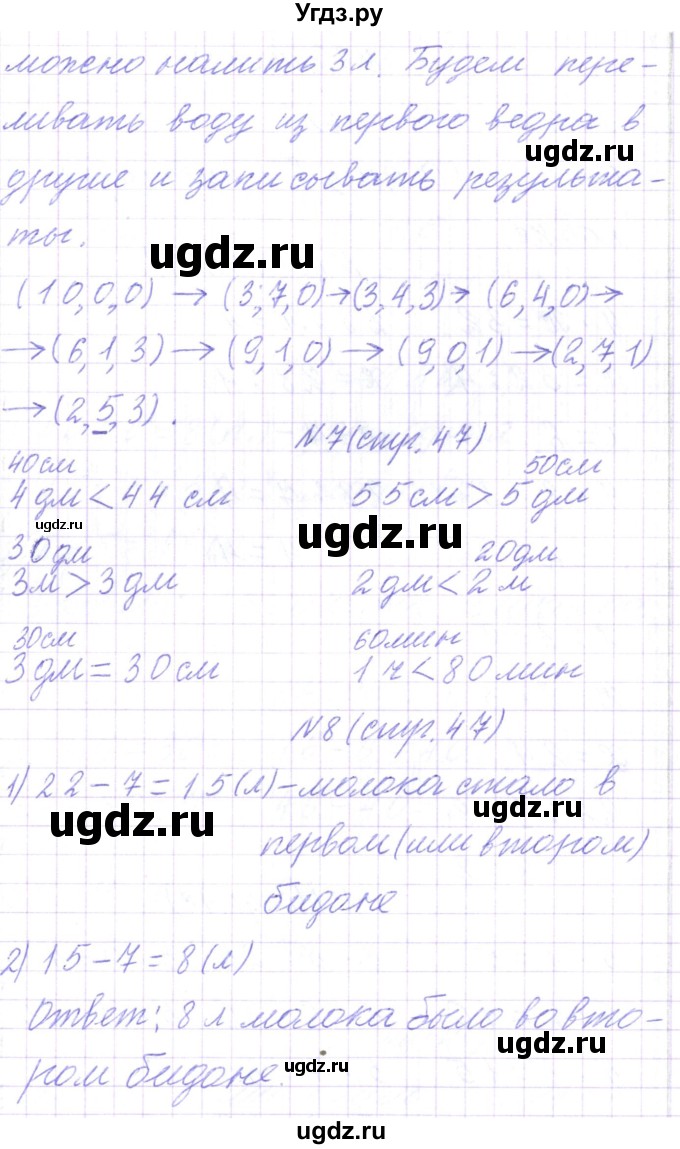 Угдз.ру
можно налить 3 л. Будем пере-
ливать воду из первого ведра в
ugdz.ru
другие и записывать результа-
ты.
ugdz.ru
(10,0,0) → (3,7,0)→(3,4,3)→ (6,4,0)→
→(6,1,3) → (9,1,0) → (9,0,1) →(2,7,1)
→(2,5,3).
N7(стр. 47)
40см 50см
4 дм < 44 см 55см > 5 дм
ugdz.ru ugdz.ru
30дм 20дм
3м > 3 дм 2 дм < 2 м
30см 60мин
3 дм = 30 см 1 ч < 80 мин
N8 (стр. 47)
1) 22 - 7 = 15 (л) - молока стало в
ugdz.ru
первом (или втором)
бидоне
2) 15 - 7 = 8 (л)
Ответ: 8 л молока было во вто-
ugdz.ru
ром бидоне.
ugdz.ru
ugdz.ru